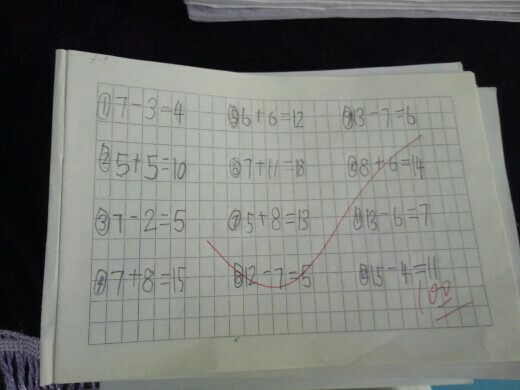 ①7-3=4 ⑤6+6=12 ⑨13-7=6
②5+5=10 ⑥7+11=18 ⑩8+6=14
③7-2=5 ⑦5+8=13 ⑪13-6=7
④7+8=15 ⑧12-7=5 ⑫15-4=11
100